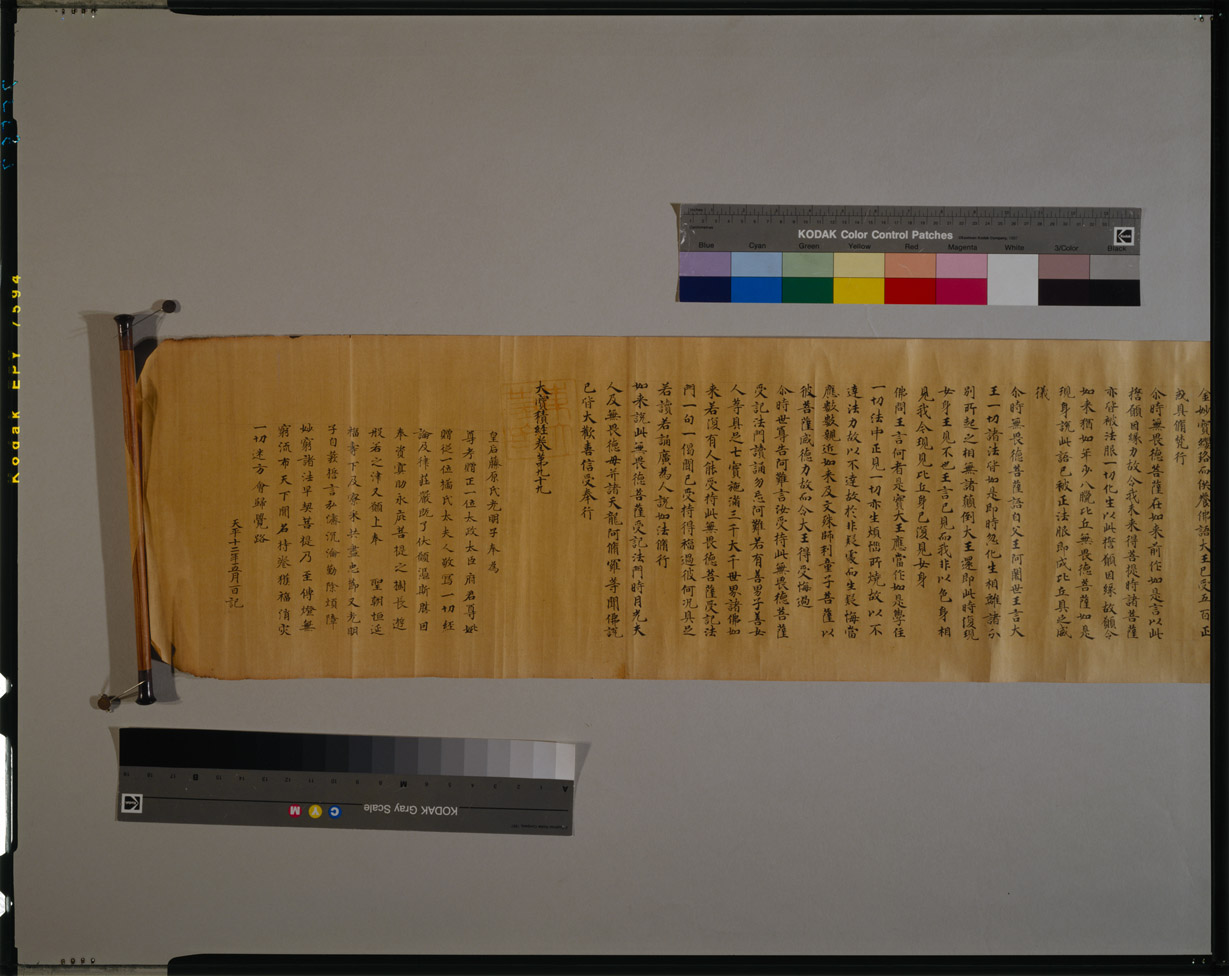 金妙寶瓔珞而供養佛語大王已受五百正
或具備梵行
尒時無畏德菩薩在如來前作如是言以此
誓願因緣力故令我未來得菩提時諸菩薩
亦登被法服一切化生以此誓願因緣故願今
如來猶如年少八晚比丘無畏德菩薩如是
現身說此語已被正法服即成比丘具之威
儀
尒時無畏德菩薩語自父王阿闍世王言大
王一切諸法皆如是即時忽化生相離諸分
別所起之相無諸顛倒大王還即此時復現
女身王見不也王言已見而我非以色身相
見我今現見比丘身已復見女身
佛問王言何者是實大王應當作如是學住
一切法中正見一切亦生煩惱所燒故以不
達法力故以不達故於非疑處而生疑悔當
應數數親近如來及文殊師利童子菩薩以
彼菩薩威德力故而令大王得受悔過
尒時世尊告阿難言汝受持此無畏德菩薩
受記法門讀誦勿忘阿難若有善男子善女
人等具足七寶施滿三千大千世界諸佛如
來若復有人能受持此無畏德菩薩受記法
門一句一偈聞已受持得福過彼何況具足
若讀若誦廣為人說如法脩行
如來說此無畏德菩薩受記法門時月光夫
人及無畏德母并諸天龍阿脩羅等聞佛說
已皆大歡喜信受奉行
大寶積經卷第九十九
皇后藤原氏光明子奉為
尊考贈正一位太政太臣府君尊妣
贈從一位橘氏太夫人敬寫一切經
論及律莊嚴既了伏願憑斯勝因
奉資冥助永庇菩提之樹長遊
般若之津又願上奉 聖朝恒延
福壽下及寮采共盡忠節又光明
子自發誓言弘濟沉淪勤除煩障
妙窮諸法早契菩提乃至傳燈無
窮流布天下聞名持卷獲福消災
一切迷方會歸覺路
天平十二年五月一日記
KODAK Color Control Patches
Blue Cyan Green Yellow Red Magenta White 3/Color Black
KODAK Gray Scale
C Y M
A M B
Kodak EPY 7594